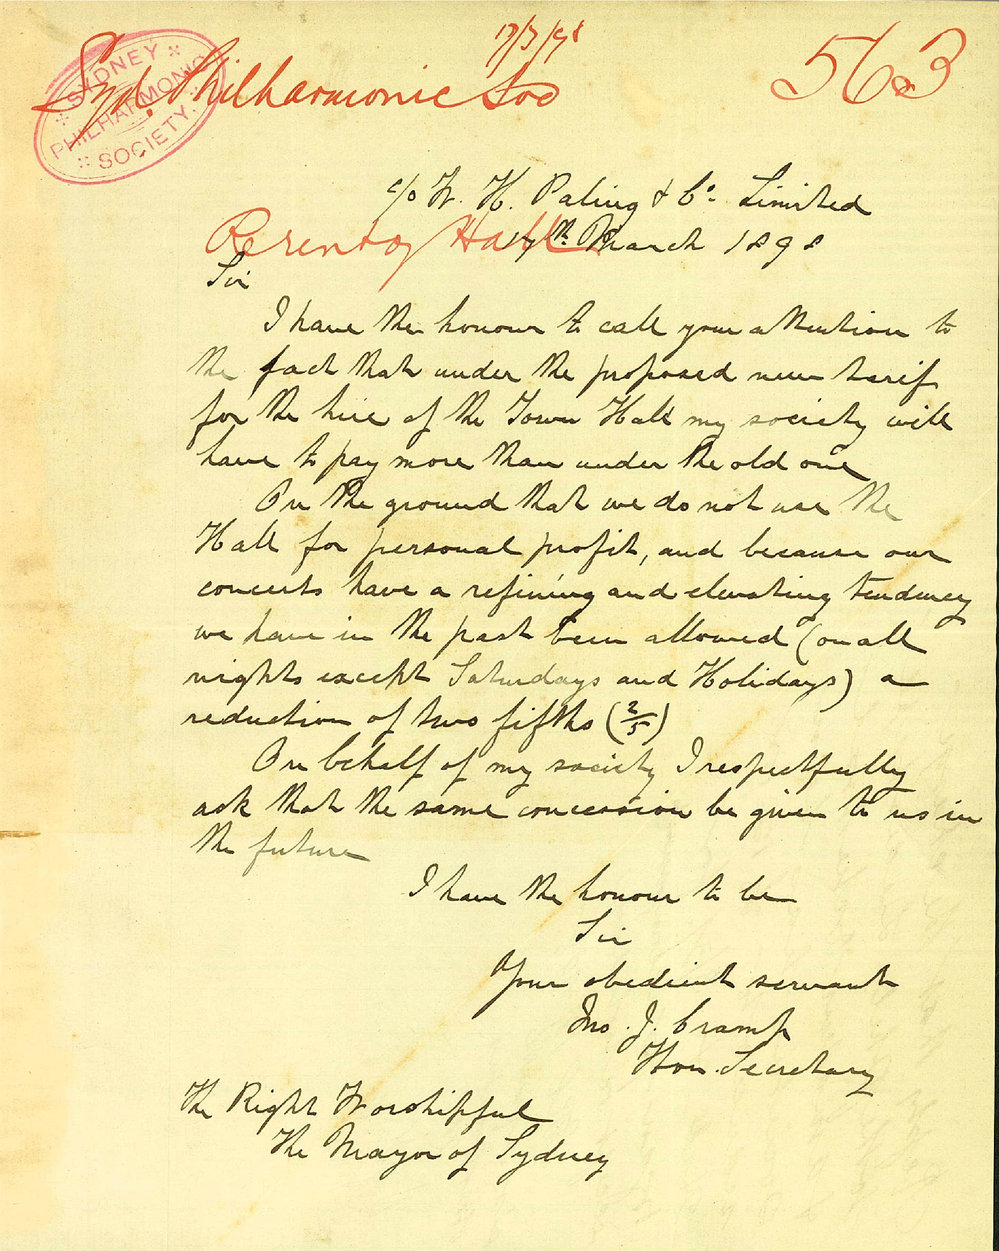 17/3/98
563
Syd. Philharmonic Soc
SYDNEY
PHILHARMONIC
SOCIETY.
c/o W. H. Paling & Co. Limited
Re rent of Hall
17th March 1898
Sir
I have the honour to call your attention to
the fact that under the proposed new tarif
for the hire of the Town Hall my society will
have to pay more than under the old one
On the ground that we do not use the
Hall for personal profit, and because our
concerts have a refining and elevating tendency
we have in the past been allowed (on all
nights except Saturdays and Holidays) a
reduction of two fifths (2/5)
On behalf of my society I respectfully
ask that the same concession be given to us in
the future
I have the honour to be
Sir
Your obedient servant
Jno. J. Cramp
Hon. Secretary
The Right Worshipful
The Mayor of Sydney